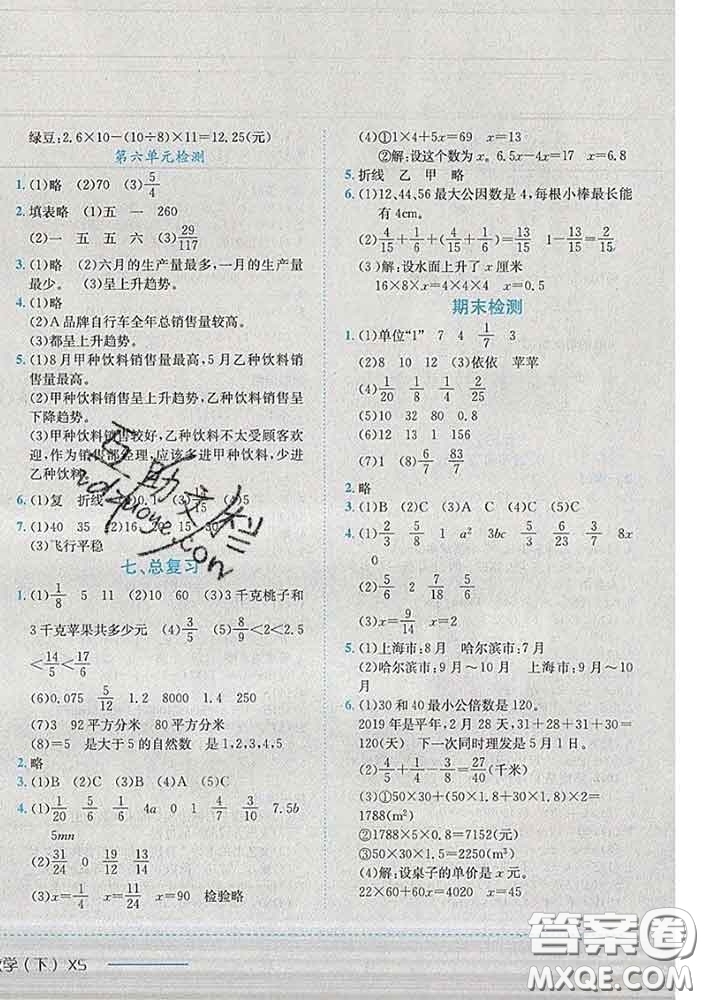 绿豆:2.6×10-(10÷8)×11=12.25(元)
第六单元检测
1. (1)略 (2)70 (3)5/4
2. 填表略 (1)五 一 260
(2)一 五 五 六 (3)29/117
3. (1)略 (2)六月的生产量最多,一月的生产量
最少。 (3)呈上升趋势。
4. (1)略
(2)A品牌自行车全年总销售量较高。
(3)都呈上升趋势。
5. (1)8月甲种饮料销售量最高,5月乙种饮料销
售量最高。
(2)甲种饮料销售量呈上升趋势,乙种饮料销售量呈
下降趋势。
(3)甲种饮料销售较好,乙种饮料不太受顾客欢
迎,作为销售部经理,应该多进甲种饮料,少进
乙种饮料。
6. (1)复 折线
7. (1)40 35 (2)16 20 15 30
(3)飞行平稳
七、总复习
1. (1)1/8 5 11 (2)10 60 (3)3千克桃子和
3千克苹果共多少元 (4)3/5 (5)8/9<2<2.5
<14/5<17/5
(6)0.075 5/12 1.2 8000 1.4
(7)3 92平方分米 80平方分米
(8)=5 是大于5的自然数 6
2. 略
3. (1)B (2)C (3)A (4)B (5)C
4. (1)1/20 5/6 1/6 4a 0 1 4/7 3/10 7.5b
5mn
(2)31/24 0 19/12 13/14
(3)x=1/4 x=11/24 x=90 检验略
(4)①1×4+5x=69 x=13
②解:设这个数为x。6.5x-4x=17 x=6.8
5. 折线 乙 甲 略
6. (1)12,44,56最大公因数是4,每根小棒最长能
有4cm。
(2)4/15+1/6+(4/15-1/6)=13/15 1-13/15=2/15
(3)解:设水面上升了x厘米
16×8×x=4×4×4 x=1/2
期末检测
1. (1)单位“1” 7 4 1/7 3
(2)8 10 12 (3)依依 苹苹
(4)1/20 1/8 1/4 2/25
(5)10 32 80 0.8
(6)12 13 1 156
(7)1 (8)6/7 83/7
2. 略
3. (1)B (2)C (3)C (4)A (5)C
4. (1)2/3 5/9 1 a² 3bc 5/6 6/23 3/7 8x
0
(2)2/5 2 7/18 5/6
(3)x=9/14 x=2
5. (1)上海市:8月 哈尔滨市:7月
(2)哈尔滨市:9月～10月 上海市:9月～10
月
6. (1)30和40最小公倍数是120。
2019年是平年,2月28天,31+28+31+30=
120(天) 下一次同时理发是5月1日。
(2)2/5+3/8-4/40=27/40(千米)
(3)①50×30+(50×1.8+30×1.8)×2=
1788(m²)
②1788×5×0.8=7152(元)
③50×30×1.5=2250(m³)
(4)解:设桌子的单价是x元。
22×60+60x=4020 x=45
数学(下) XS
互助文栏
答案卷
MXQE.COM